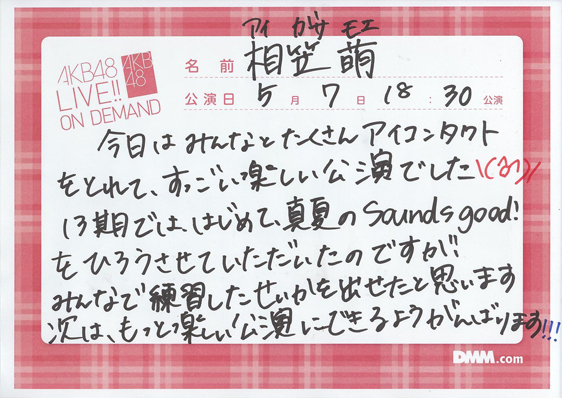 アイ がサ モエ
AKB48
LIVE!!
ON DEMAND
AKB
48
名前 相笠 萌
公演日 5月7日 18:30 公演
今日はみんなとたくさんアイコンタクト
をとれて、すっごい楽しい公演でした
13期では、はじめて、真夏のSounds good!
をひろうさせていただいたのですが!!
みんなで練習したせいかを出せたと思います
次は、もっともっと楽しい公演にできるようがんばります!!!
DMM.com